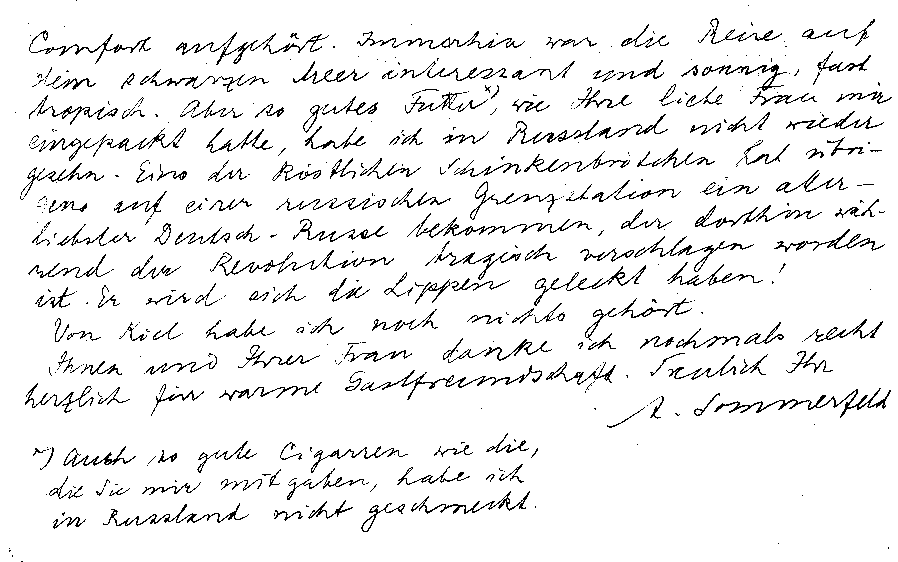 Comfort aufgehört. Immerhin war die Reise auf
dem schwarzen Meer interessant und sonnig, fast
tropisch. Aber so gutes Futter*), wie Ihre liebe Frau mir
eingepackt hatte, habe ich in Russland nicht wieder
gesehn. Eins der köstlichen Schinkenbrötchen hat übri-
gens auf einer russischen Grenzstation ein aller-
liebster Deutsch-Russe bekommen, der dorthin wäh-
rend der Revolution tragisch verschlagen worden
ist. Er wird sich die Lippen geleckt haben!
Von Kiel habe ich noch nichts gehört.
Ihnen und Ihrer Frau danke ich nochmals recht
herzlich für warme Gastfreundschaft. Treulich Ihr
A. Sommerfeld
*) Auch so gute Cigarren wie die,
die Sie mir mitgaben, habe ich
in Russland nicht geschmeckt.